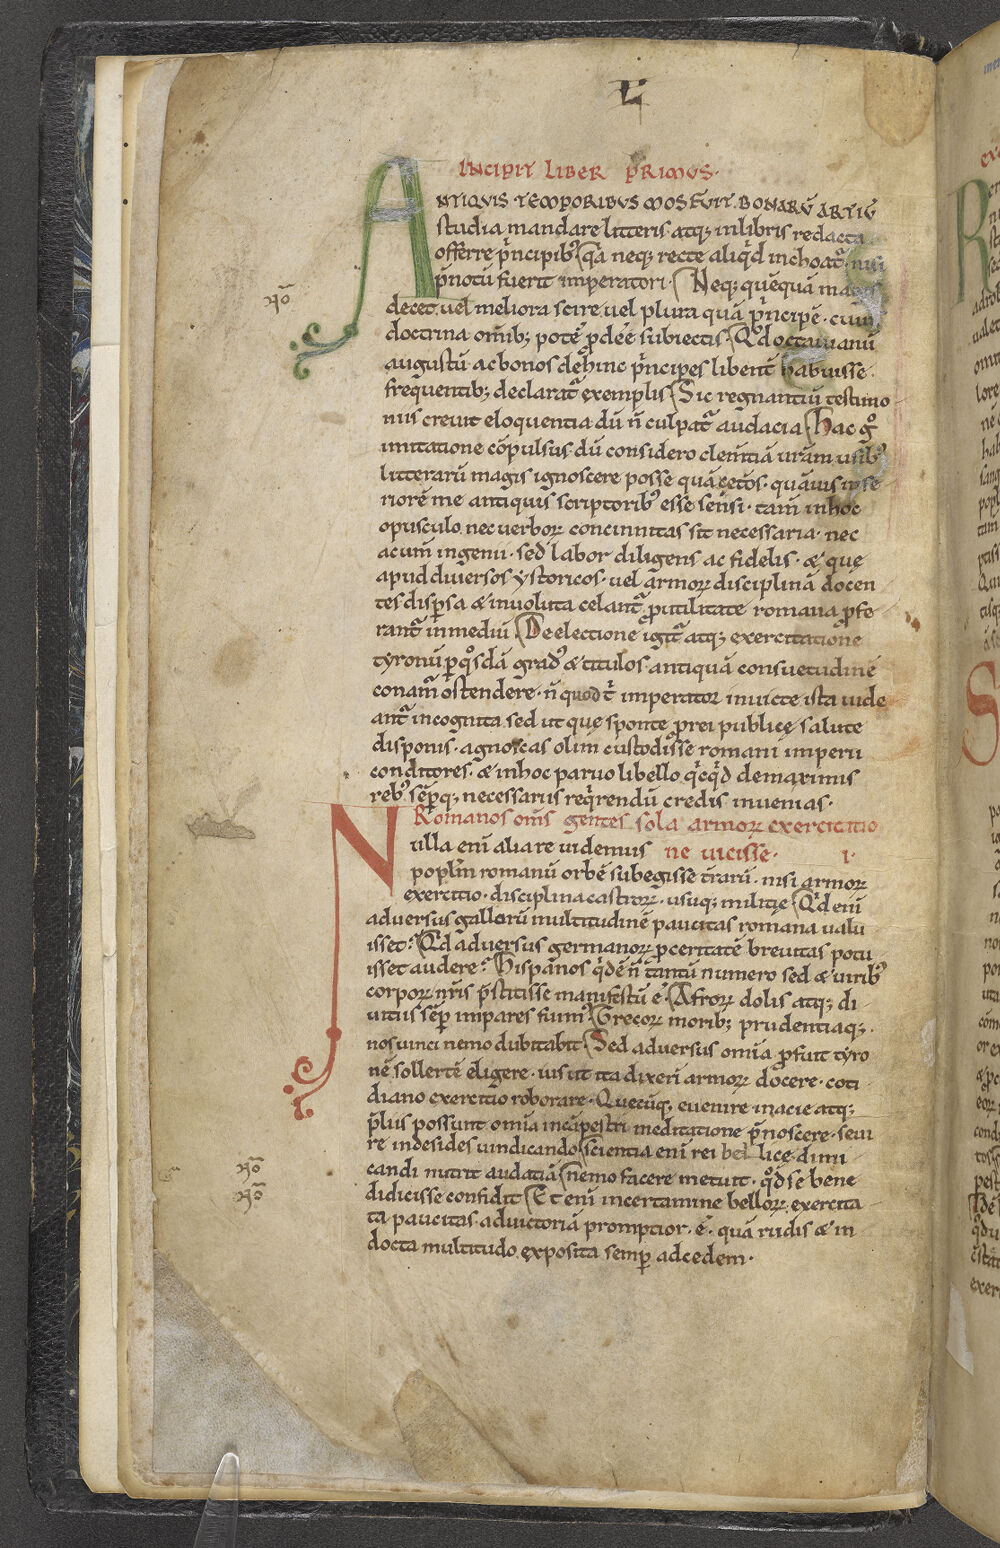 INCIPIT LIBER PRIMUS·
ANTIQUIS TEMPORIBUS MOS FUIT. BONARŪ ARTIŪ
studia mandare litteris atq; inlibris redacta
offerre p̄ncipib᷒. Qa neq; recte aliqͥd inchoat᷑. nisi
p̄notū fuerit imperatori. Neq; quēquā magis
decet uel meliora scire uel plura quā p̄ncipē. cuius
doctrina om̄ib; potē p̄deē subiectis. Qd̓ octauianū
augustū ac bonos dehinc p̄ncipes libent̄ habuisse.
frequentib; declarat᷑ exemplis. Sic regnantiū testimo
niis creuit eloquentia dū n̄ culpat᷑ audacia. Hac gͦ
imitatione cōpulsus. dū considero clem̄tiā urām usib᷒
litterarū magis ignoscere posse quā cet̄os. quāuis infe
riorē me antiquis scriptorib᷒ esse sensi. tam̄ inhoc
opusculo nec uerboꝝ concinnitas sit necessaria. nec
acum̄ ingenii. sed labor diligens ac fidelis. & que
apud diuersos ystoricos. uel armoꝝ disciplinā docen
tes disꝑsa & inuoluta celant᷑. ꝓutilitate romana ꝓfe
rant᷑ inmediū. De electione igit᷑ atq; exercitatione
tyronū ꝑ qͦsdā grad᷒ & titulos antiquā consuetudinē
conam᷑ ostendere. n̄ quod t̄ imperator inuicte ista uide
ant᷑ incognita sed ut quę sponte ꝓrei publicę salute
disponis. agnoscas olim custodisse romani imperii
conditores. & inhoc paruo libello qͥcqͥd demaximis
reb᷒ sēꝑq; necessariis reqͥrendū credis inuenias.
Romanos om̄s gentes sola armoꝝ exercitatio
Nulla enī alia re uidemus ne uicisse. I.
popl̄m romanū orbē subegisse t̄rarū. nisi armoꝝ
exercitio. disciplina castroꝝ. usuq; militię. Qd̓ enī
aduersus gallorū multitudinē paucitas romana ualu
isset? Qd aduersus germanoꝝ ꝓceritatē breuitas potu
isset audere? Hispanos qͥdē n̄ tantū numero sed & uirib᷒
corpoꝝ nr̄is p̄stitisse manifestū ē. Afroꝝ dolis atq; di
uitiis sēꝑ impares fuim᷒. Grecoꝝ morib; prudentiaq;.
nos uinci nemo dubitabit. Sed aduersus om̄ia ꝓfuit tyro
nē sollertē eligere. ius ut ita dixeri armoꝝ docere. coti
diano exercitio roborare. Quecūq; euenire inacie atq;
p̄liis possunt om̄ia incāpestri meditatione p̄noscere. seue
re indesides uindicando. scientia enī rei bellice dimi
candi nutrit audatiā. nemo facere metuit. qͦd se bene
didicisse confidit. Et enī incertamine belloꝝ exercita
ta paucitas aduictoriā promptior. ē. quā rudis & in
docta multitudo exposita semꝑ adcedem.